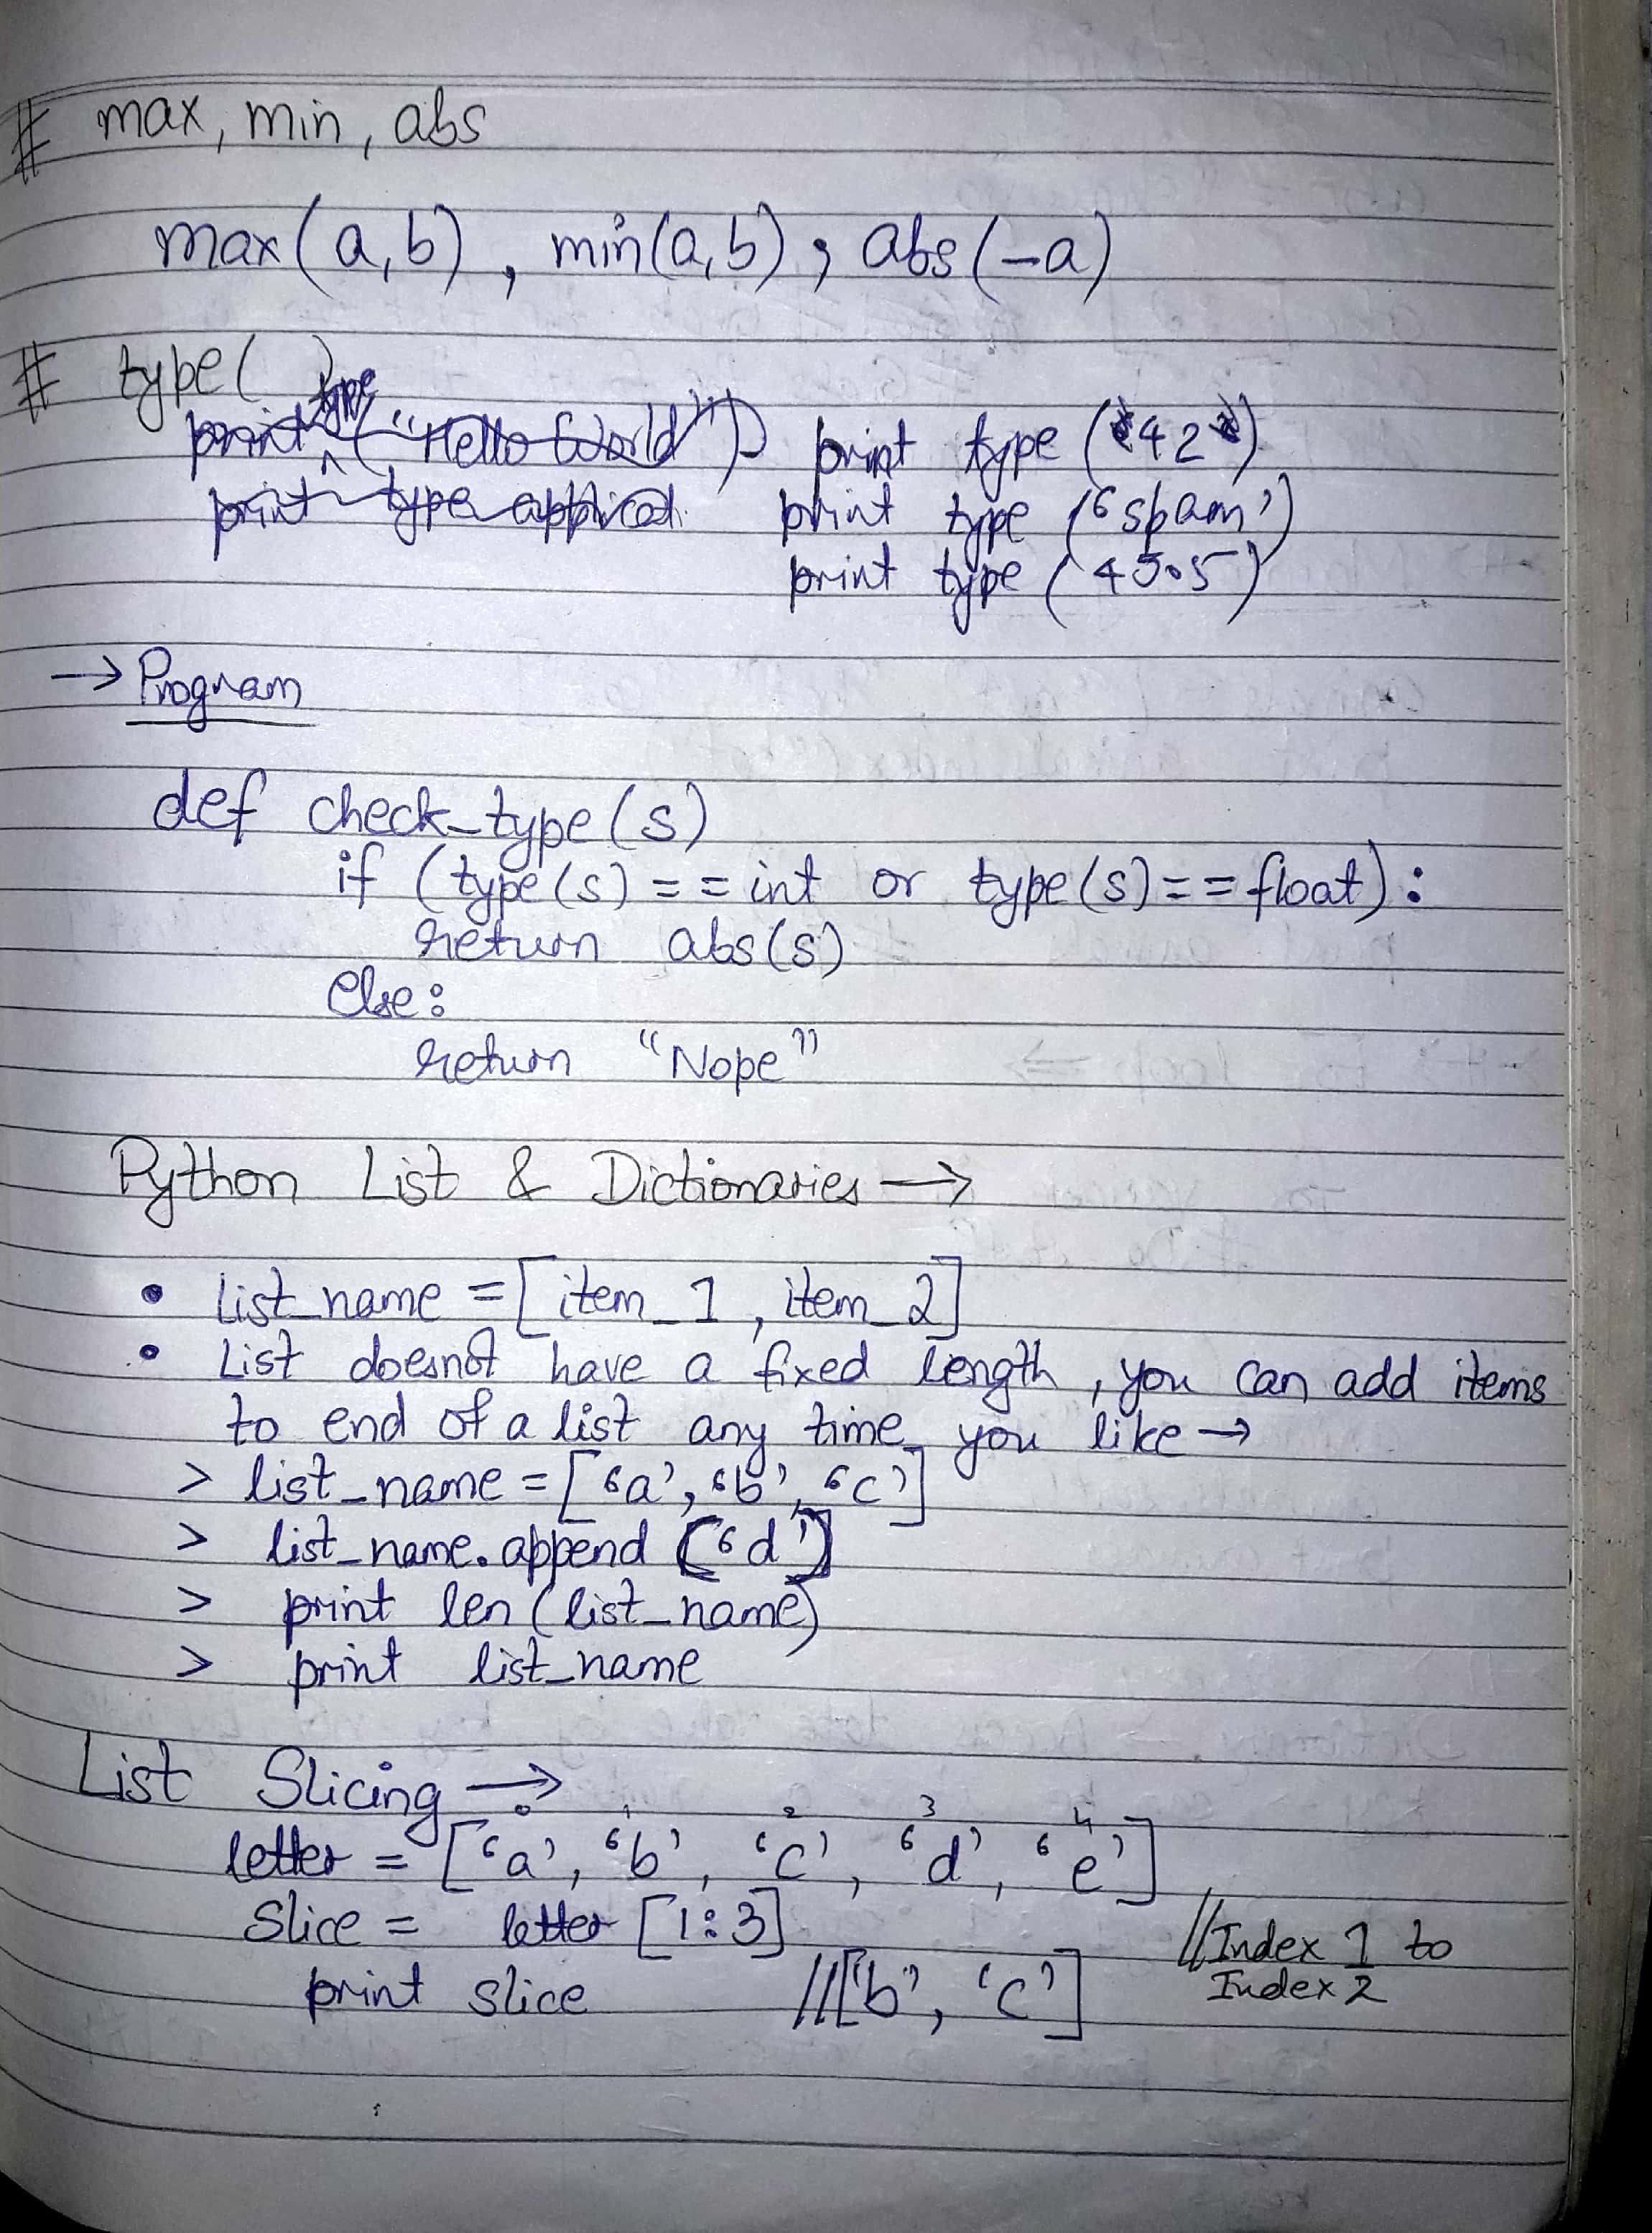 # max, min, abs
max(a,b), min(a,b), abs(-a)
# type( )
print type ("Hello World") print type (42)
print type applied print type ('spam')
print type (45.5)
→ Program
def check_type(s)
if (type(s) == int or type(s) == float):
return abs(s)
Else:
return "Nope"
Python List & Dictionaries →
• List_name = [item_1, item_2]
• List doesnot have a fixed length, you can add items
to end of a list any time you like →
> list_name = ['a', 'b', 'c']
> list_name.append('d')
> print len(list_name)
> print list_name
List Slicing →
0 1 2 3 4
letter = ['a', 'b', 'c', 'd', 'e']
Slice = letter [1:3] //Index 1 to
print slice //['b', 'c'] Index 2